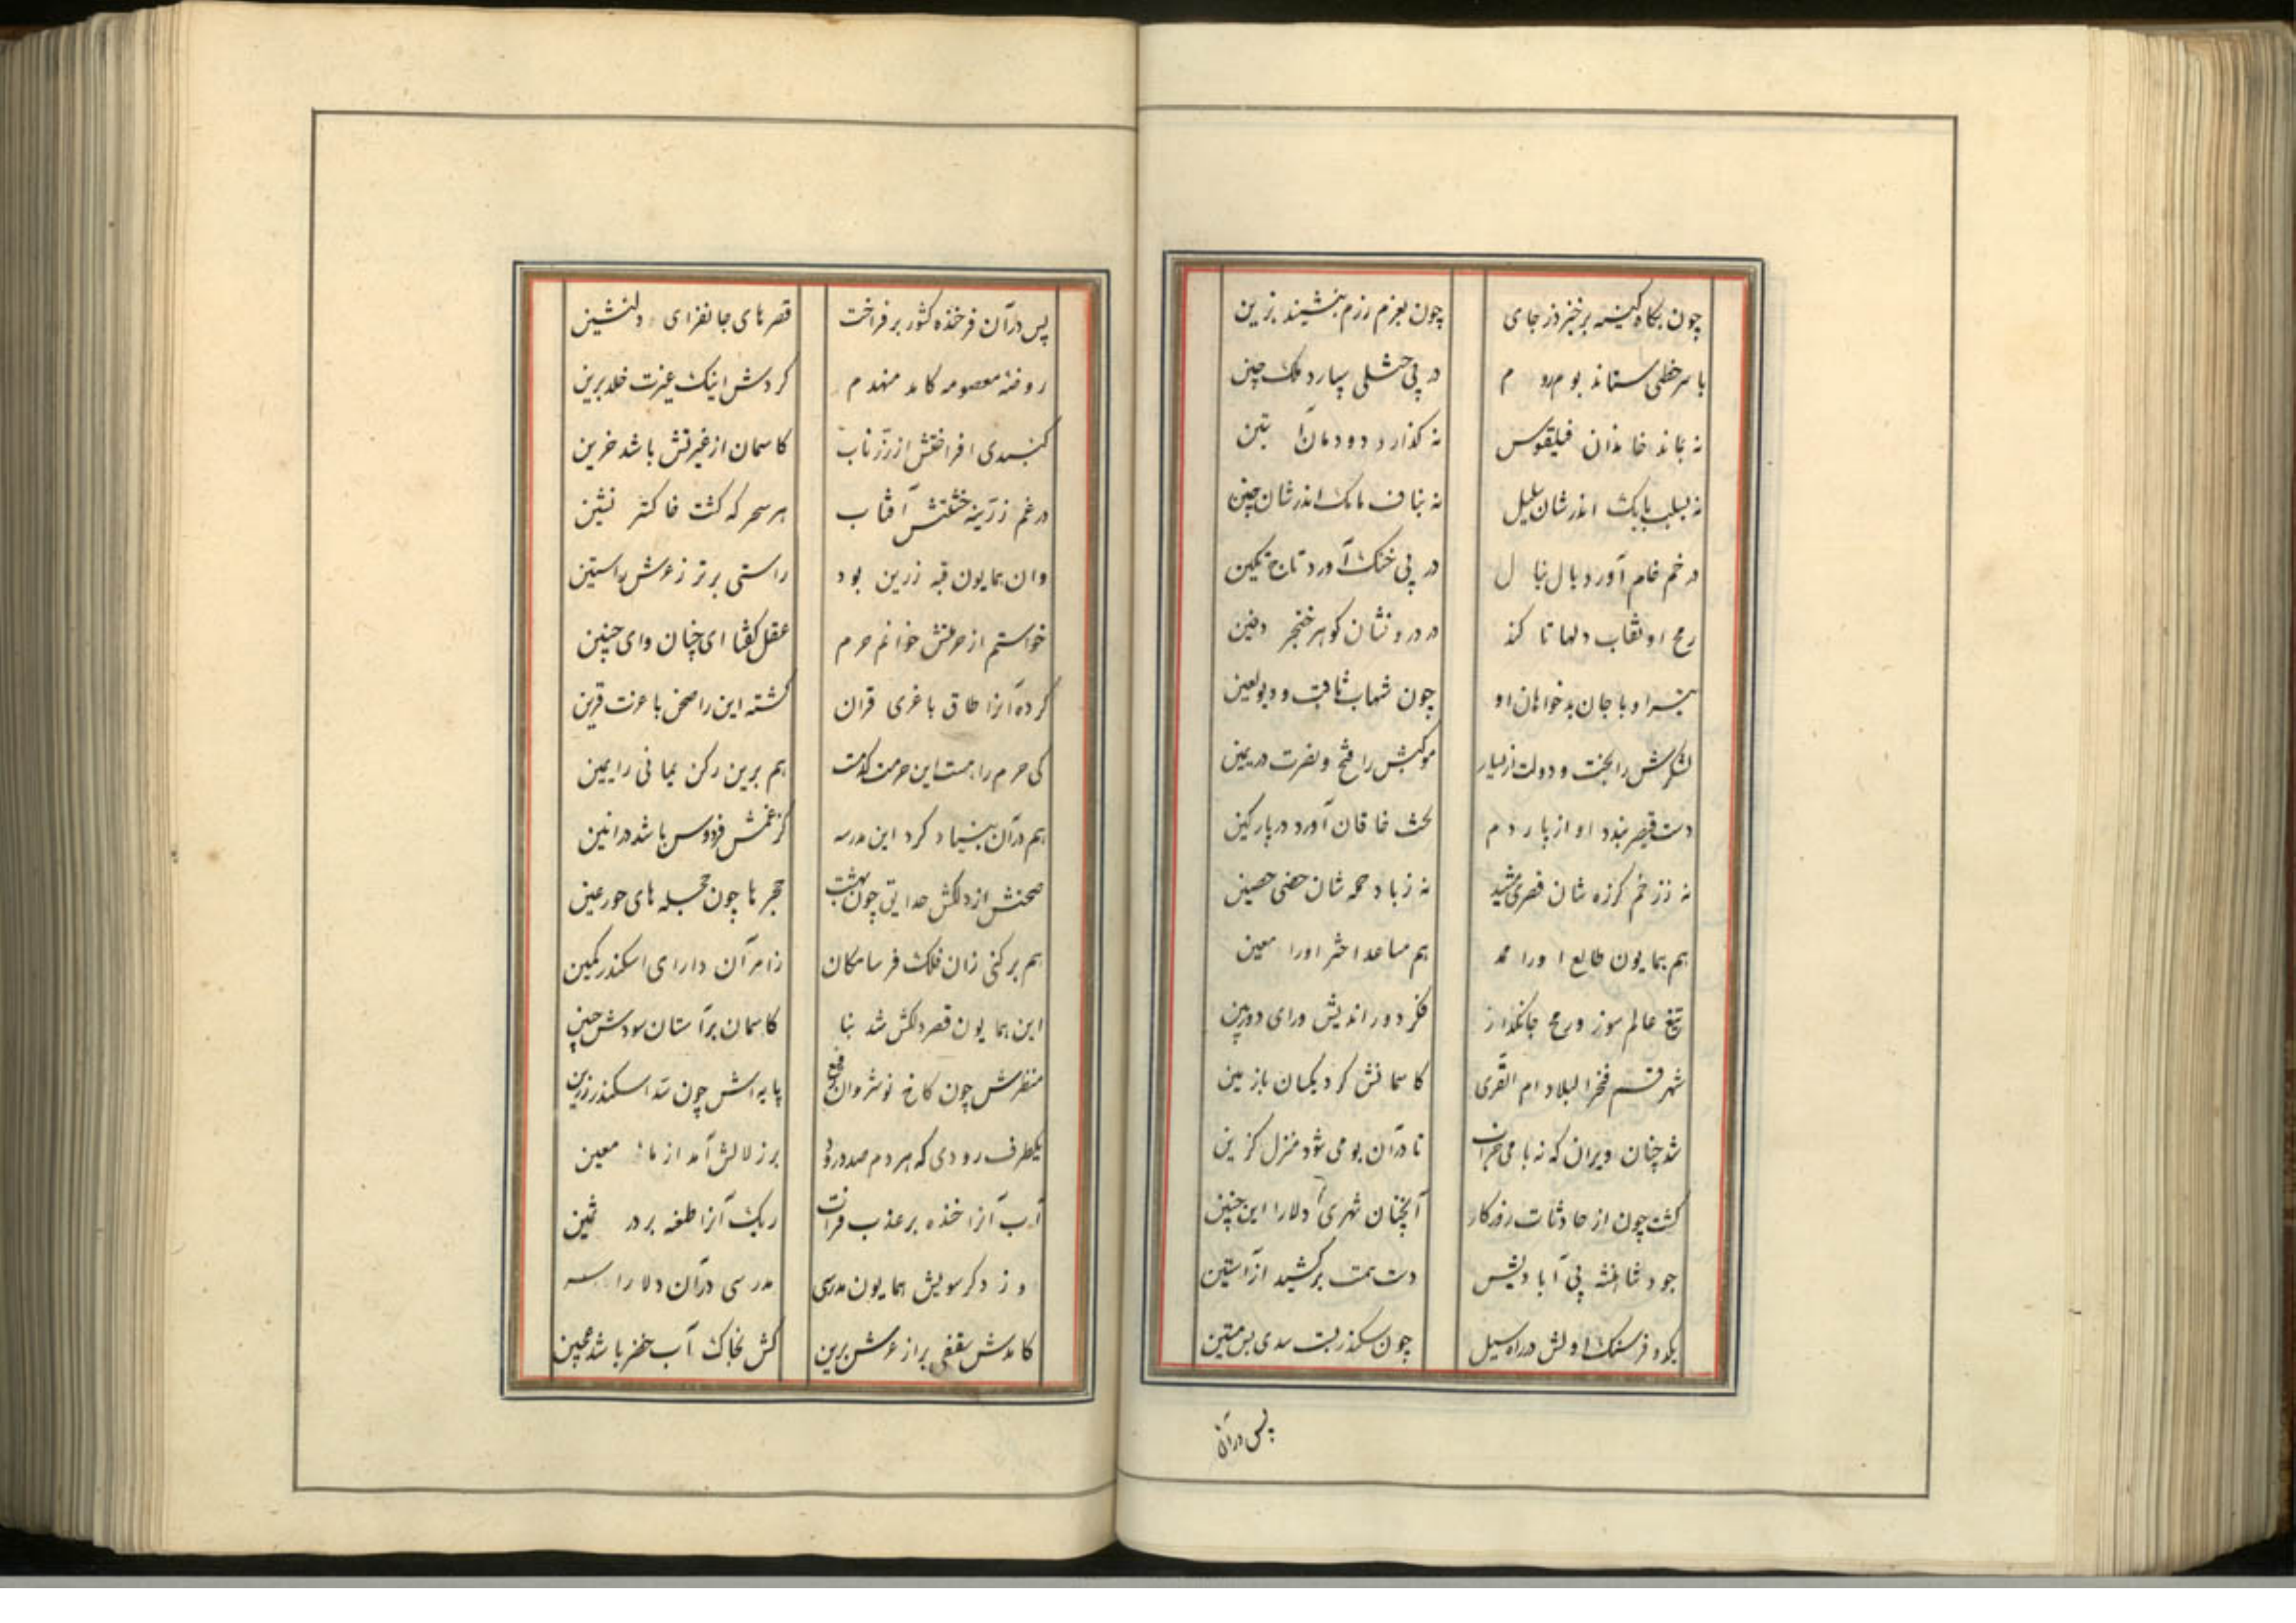 چون بگاه کینه برخیزد ز جای چون بعزم رزم بنشیند بزین
با سرخطی ستاند بوم روم در پی ختلی سپارد ملک چین
نه بماند خاندان فیلقوس نه گذارد دودمان آبتین
نه بصلب بابک اندرشان سلیل نه بناف مامک اندرشان جنین
در خم خام آورد یال نیال در پی خنگ آورد تاج تکین
رمح او نقاب دلها تا کند در درونشان گوهر خنجر دفین
تیر او با جان بدخواهان او چون شهاب ثاقب و دیو لعین
لشکرش را بخت و دولت از یسار موکبش را فتح و نصرت در یمین
دست قیصر بندد او از پاردم خاقان آورد در پار کین
نه ز زخم گرزه شان قصری مشید نه ز باد حمله شان حصنی حصین
هم همایون طالع او را ممد هم مساعد اختر او را معین
تیغ عالم سوز و رمح جانگداز فکر دور اندیش و رای دوربین
شهر قم فخر البلاد ام القری کاسمانش کرد یکسان با زمین
شد چنان ویران که نه بامی خراب تا در آن بومی شود منزل گزین
گشت چون از حادثات روزگار آنچنان شهری دلارا این چنین
جود شاهنشه پی آبادیش دست همت برکشید از آستین
یکدو فرسنگ اولش در راه سیل چون سکندر بست سدی بس متین
پس در آن
پس در آن فرخنده کشور برفراخت قصرهای جانفزای دلنشین
روضه معصومه کامد منهدم کردش اینک غیرت خلد برین
گنبدی افراختش از زر ناب کاسمان از غیرتش باشد حزین
در غم زرینه خشتش آفتاب هر سحر که گشت خاکستر نشین
وان همایون قبه زرین بود راستی برتر ز عرش راستین
خواستم از حرمتش خوانم حرم عقل گفتا ای چنان وای چنین
کرده آنرا طاق با غری قران گشته این را صحن با عزت قرین
کی حرم را هست این حرمت گذشت هم برین رکن یمانی را یمین
هم در آن بنیاد کرد این مدرسه کز غمش فردوس باشد در انین
صحنش از دلکش حدایق چون بهشت حجرها چون حجله های حور عین
هم برکنی زان فلک فرسا مکان زامر آن دارای اسکندر مکین
این همایون قصر دلکش شد بنا کاسمان بر آستان سودش جبین
منظرش چون کاخ نوشروان رفیع پایه اش چون سد اسکندر رزین
یکطرف رودی که هر دم صد درود بر زلالش آمد از ماء معین
آب آنرا خنده بر عذب فرات ریک آنرا طعنه بر در ثمین
وز دگر سویش همایون مدرسی مدرسی در آن دلارا
کامدش سقفی بر از عرش برین کش بخاک آب خضر باشد عجین